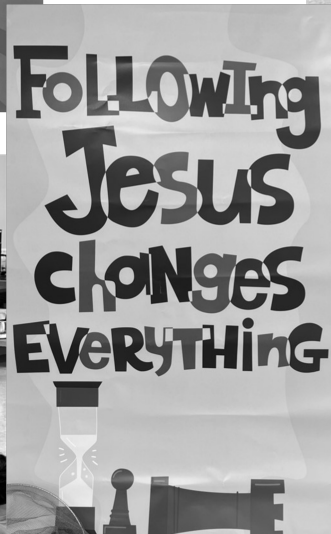 FOLLOWIng
Jesus
chaNges
EVeRyTHinG